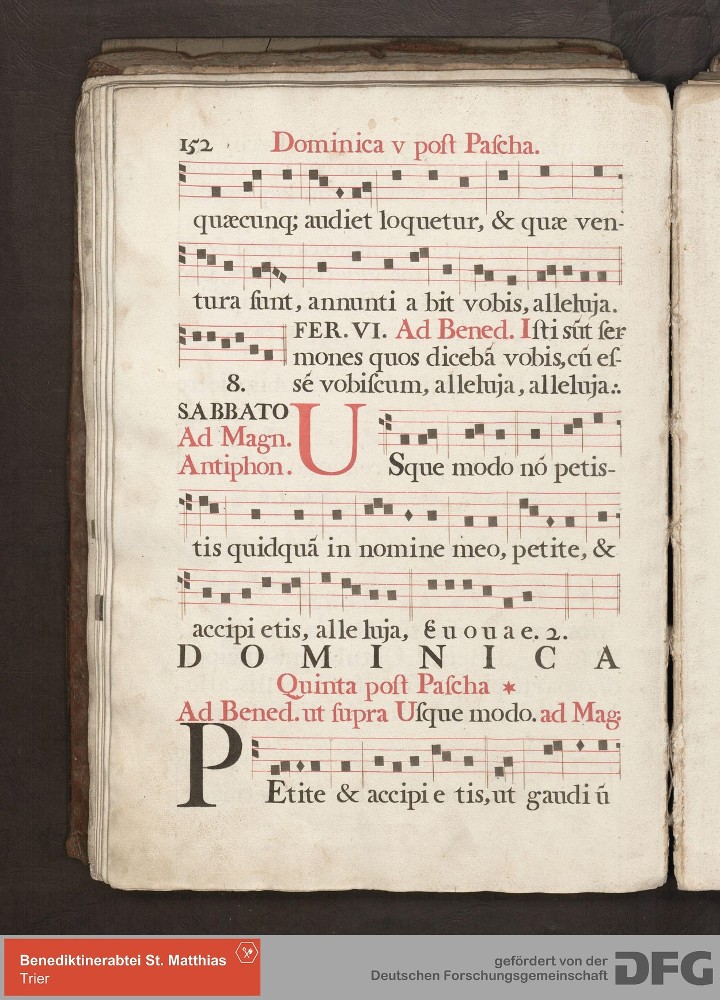 152 Dominica v poſt Paſcha.
quæcunq; audiet loquetur, & quæ ven-
tura ſunt, annunti a bit vobis, alleluja.
FER. VI. Ad Bened. Iſti sūt ſer-
mones quos dicebā vobis, cū eſ-
8. sé vobiſcum, alleluja, alleluja.:.
SABBATO
Ad Magn.
Antiphon.
USque modo nō petis-
tis quidquā in nomine meo, petite, &
accipi etis, alle luja, Euouae. 2.
DOMINICA
Quinta poſt Paſcha *
Ad Bened. ut ſupra Uſque modo. ad Mag:
PEtite & accipi e tis, ut gaudi ū
Benediktinerabtei St. Matthias
Trier
gefördert von der
Deutschen Forschungsgemeinschaft
DFG